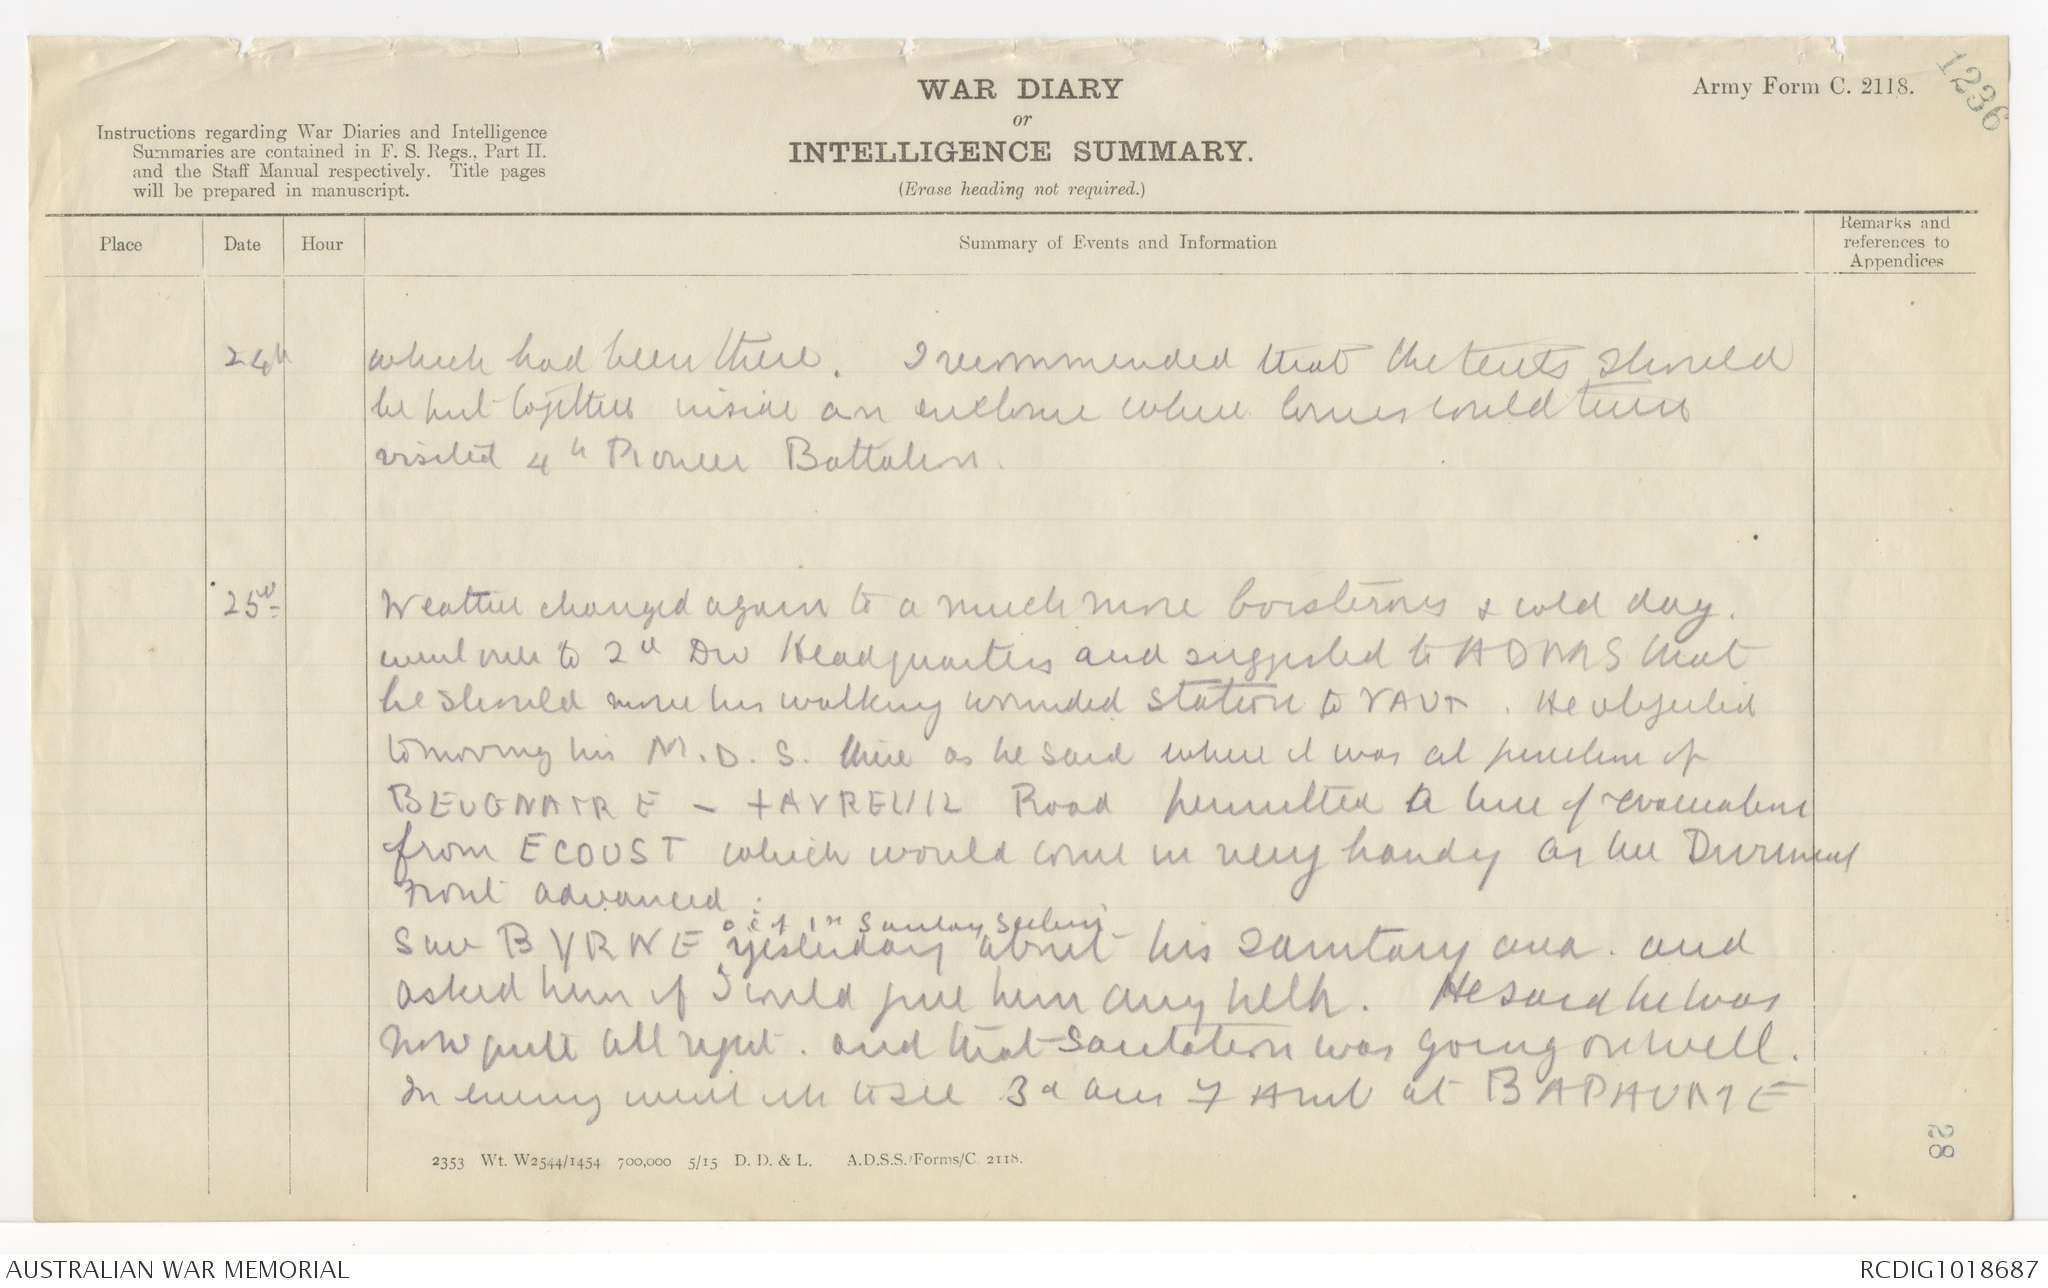 WAR DIARY
or
INTELLIGENCE SUMMARY.
(Erase heading not required.)
Army Form C. 2118.
1236
Instructions regarding War Diaries and Intelligence
Summaries are contained in F. S. Regs., Part II.
and the Staff Manual respectively. Title pages
will be prepared in manuscript.
Place
Date
Hour
Summary of Events and Information
Remarks and
references to
Appendices
24th which had been there. I recommended that the tents should
be put together inside an enclosure where could
visited 4th Pioneer Battalion.
25th Weather changed again to a much more boisterous & cold day.
went over to 2nd Div Headquarters and suggested to ADMS that
he should move his walking wounded station to VAUX. He objected
to moving his M.D.S. there as he said where it was at junction of
BEUGNATRE - FAVREUIL Road permitted a line of evacuation
from ECOUST which would come in very handy as the Divisional
Front advanced.
O.C. of 1st Sanitary Section
Saw BYRNE yesterday about his sanitary area. and
asked him if I could give him any help. He said he was
now quite all right. and that sanitation was going on well.
In evening went up to see 3rd Aus F Amb at BAPAUME
2353 Wt. W2544/1454 700,000 5/15 D. D. & L. A.D.S.S./Forms/C. 2118.
28
AUSTRALIAN WAR MEMORIAL
RCDIG1018687